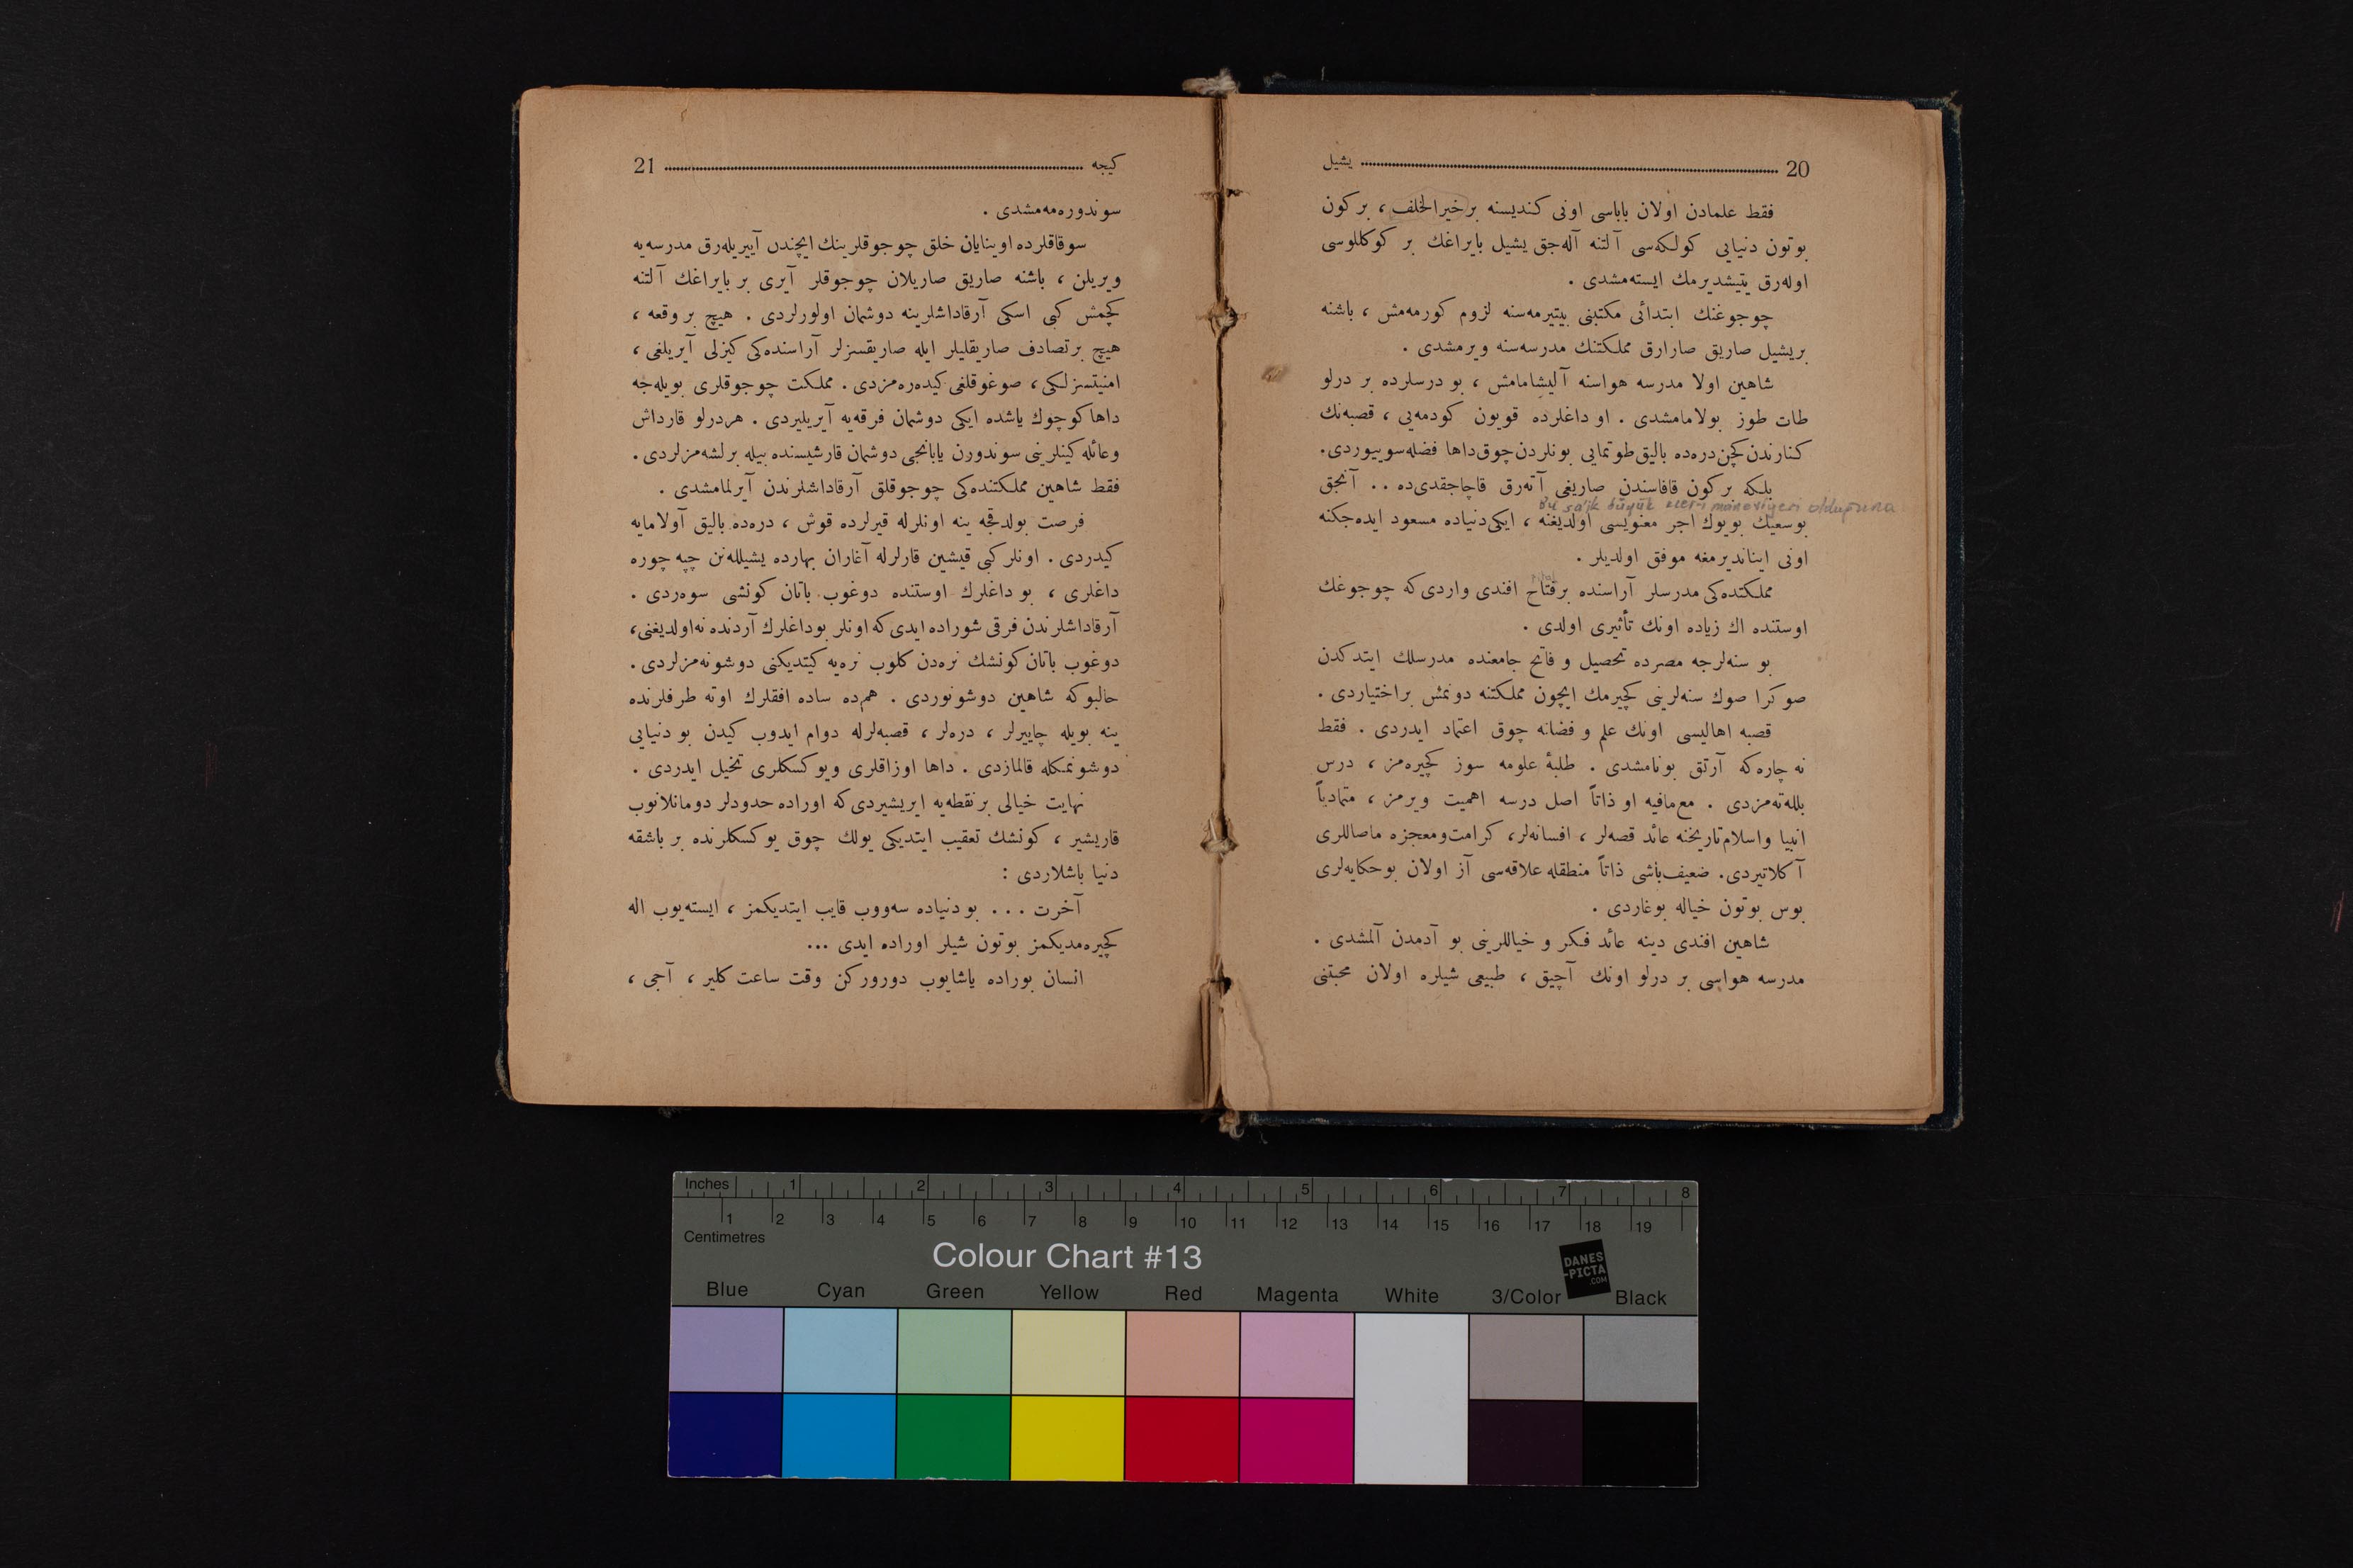 20 يشيل
فقط علمادن اولان باباسى اونى كنديسنه بر خير الخلف ، بر كون
بوتون دنيايى كولكه‌سى آلتنه آله‌جق يشيل بايراغك بر كوكللوسى
اوله‌رق يتيشديرمك ايسته‌مشدى .
چوجوغنك ابتدائى مكتبنى بيتيرمه‌سنه لزوم كورمه‌مش ، باشنه
بر يشيل صاريق صارارق مملكتنك مدرسه‌سنه ويرمشدى .
شاهين اولا مدرسه هواسنه آليشامامش ، بو درسلرده بر درلو
طات طوز بولامامشدى . او داغلرده قويون كودمه‌يى ، قصبه‌نك
كنارندن كچن دره‌ده باليق طوتمايى بونلردن چوق داها فضله سوييوردى .
بلكه بر كون قافاسندن صاريغى آته‌رق قاچاجقدى ده . . آنجق
Bu sa'yik büyük ecr-i maneviyesi olduğuna
بوسعيك بويوك اجر معنويسى اولديغنه ، ايكى دنياده مسعود ايده‌جكنه
اونى اينانديرمغه موفق اولديلر .
مملكتده‌كى مدرسلر آراسنده بر فتاح افندى واردى كه چوجوغك
اوستنده اك زياده اونك تأثيرى اولدى .
بو سنه‌لرجه مصرده تحصيل و فاتح جامعنده مدرسلك ايتدكدن
صوكرا صوك سنه‌لرينى كچيرمك ايچون مملكتنه دونمش بر اختياردى .
قصبه اهاليسى اونك علم و فضلنه چوق اعتماد ايدردى . فقط
نه چاره كه آرتق بونامشدى . طلبۀ علومه سوز كچيره‌مز ، درس
بلله‌ته‌مزدى . مع‌مافيه او ذاتاً اصل درسه اهميت ويرمز ، متمادياً
انبيا و اسلام تاريخنه عائد قصه‌لر ، افسانه‌لر ، كرامت و معجزه ماصاللرى
آكلاتيردى . ضعيف باشى ذاتاً منطقله علاقه‌سى آز اولان بو حكايه‌لرى
بوس بوتون خياله بوغاردى .
شاهين افندى دينه عائد فكر و خياللرينى بو آدمدن آلمشدى .
مدرسه هواسى بر درلو اونك آچيق ، طبيعى شيلره اولان محبتنى
كيجه 21
سوندوره‌مه‌مشدى .
سوقاقلرده اوينايان خلق چوجوقلرينك ايچندن آييريله‌رق مدرسه‌يه
ويريلن ، باشنه صاريق صاريلان چوجوقلر آيرى بر بايراغك آلتنه
كچمش كبى اسكى آرقاداشلرينه دوشمان اولورلردى . هيچ بر وقعه ،
هيچ بر تصادف صاريقليلر ايله صاريقسزلر آراسنده‌كى كيزلى آيريلغى ،
امنيتسزلكى ، صوغوقلغى كيده‌ره‌مزدى . مملكت چوجوقلرى بويله‌جه
داها كوچوك ياشده ايكى دوشمان فرقه‌يه آيريليردى . هر درلو قارداش
و عائله كينلرينى سوندورن يابانجى دوشمان قارشيسنده بيله برلشه‌مزلردى .
فقط شاهين مملكتنده‌كى چوجوقلق آرقاداشلرندن آيرلمامشدى .
فرصت بولدقجه ينه اونلرله قيرلرده قوش ، دره‌ده باليق آولامايه
كيدردى . اونلر كبى قيشين قارلرله آغاران بهارده يشيلله‌نن چپه چوره
داغلرى ، بو داغلرك اوستنده دوغوب باتان كونشى سوه‌ردى .
آرقاداشلرندن فرقى شوراده ايدى كه اونلر بو داغلرك آردنده نه اولديغنى ،
دوغوب باتان كونشك نره‌دن كلوب نره‌يه كيتديكنى دوشونه‌مزلردى .
حالبوكه شاهين دوشونوردى . هم‌ده ساده افقلرك اوته طرفلرنده
ينه بويله چاييرلر ، دره‌لر ، قصبه‌لرله دوام ايدوب كيدن بو دنيايى
دوشونمكله قالمازدى . داها اوزاقلرى و يوكسكلرى تخيل ايدردى .
نهايت خيالى بر نقطه‌يه ايريشيردى كه اوراده حدودلر دومانلانوب
قاريشير ، كونشك تعقيب ايتديكى يولك چوق يوكسكلرنده بر باشقه
دنيا باشلاردى :
آخرت . . . بو دنياده سه‌ووب قايب ايتديكمز ، ايسته‌يوب اله
كچيره‌مديكمز بوتون شيلر اوراده ايدى ...
انسان بوراده ياشايوب دورورکن وقت ساعت كلير ، آجى ،
Inches 1 2 3 4 5 6 7 8
1 2 3 4 5 6 7 8 9 10 11 12 13 14 15 16 17 18 19
Centimetres
Colour Chart #13
DANES
-PICTA
.COM
Blue Cyan Green Yellow Red Magenta White 3/Color Black